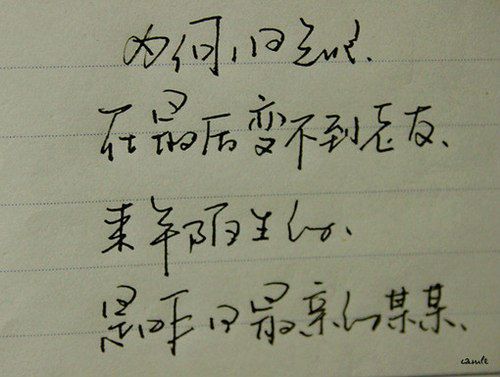 为何旧知己.
在最后变不到老友、
来年陌生的、
是昨日最亲的某某、